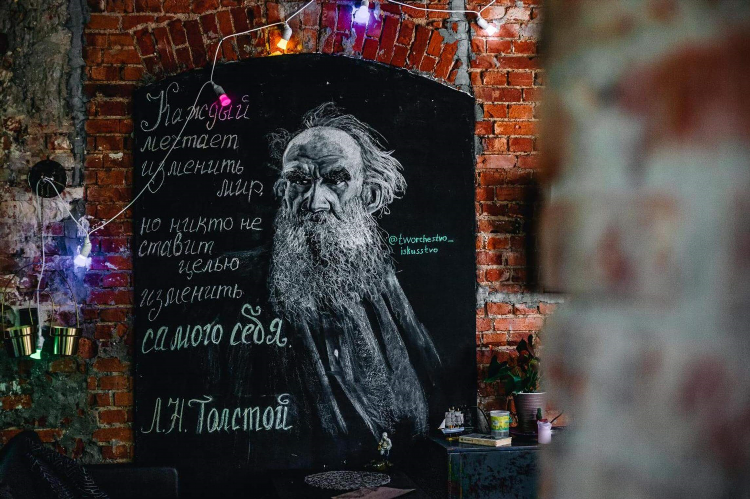 Каждый
мечтает
изменить
мир,
но никто не
ставит
целью
изменить
самого себя.
Л.Н.Толстой
@tworchestvo_
iskusstvo